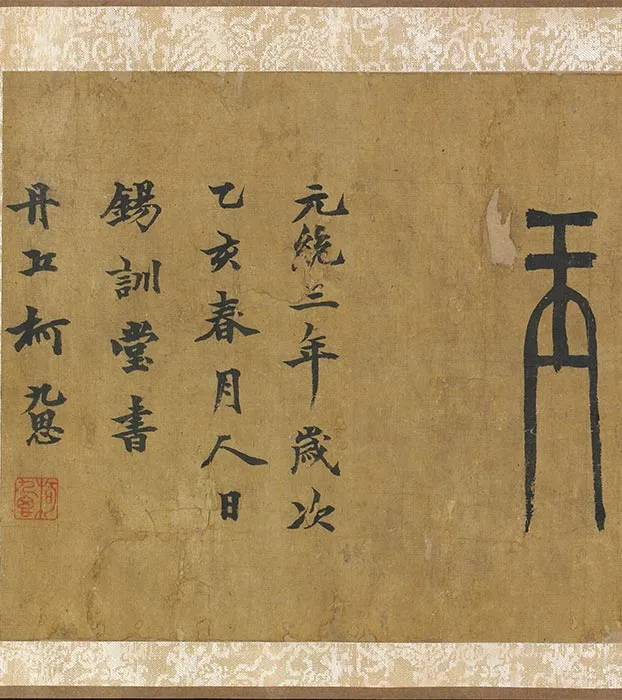 元統三年歲次
乙亥春月人日
錫訓堂書
丹丘柯九思